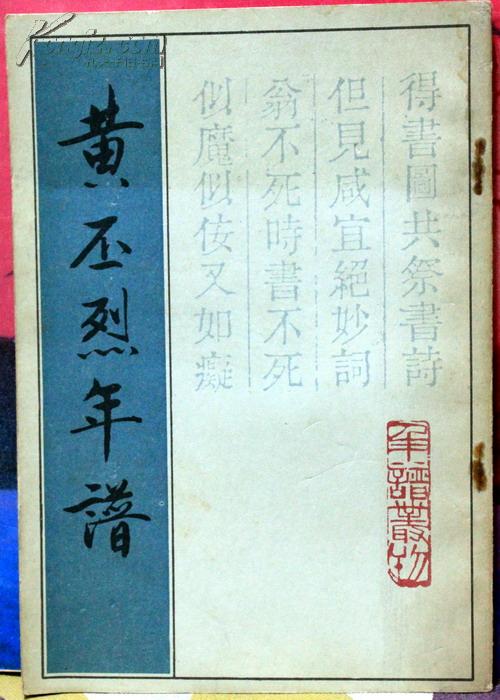 得書圖共祭書詩
但見咸宜絕妙詞
翁不死時書不死
似魔似佞又如癡
黄丕烈年譜
年譜叢刊